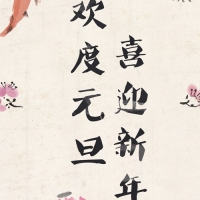 喜迎新年
欢度元旦